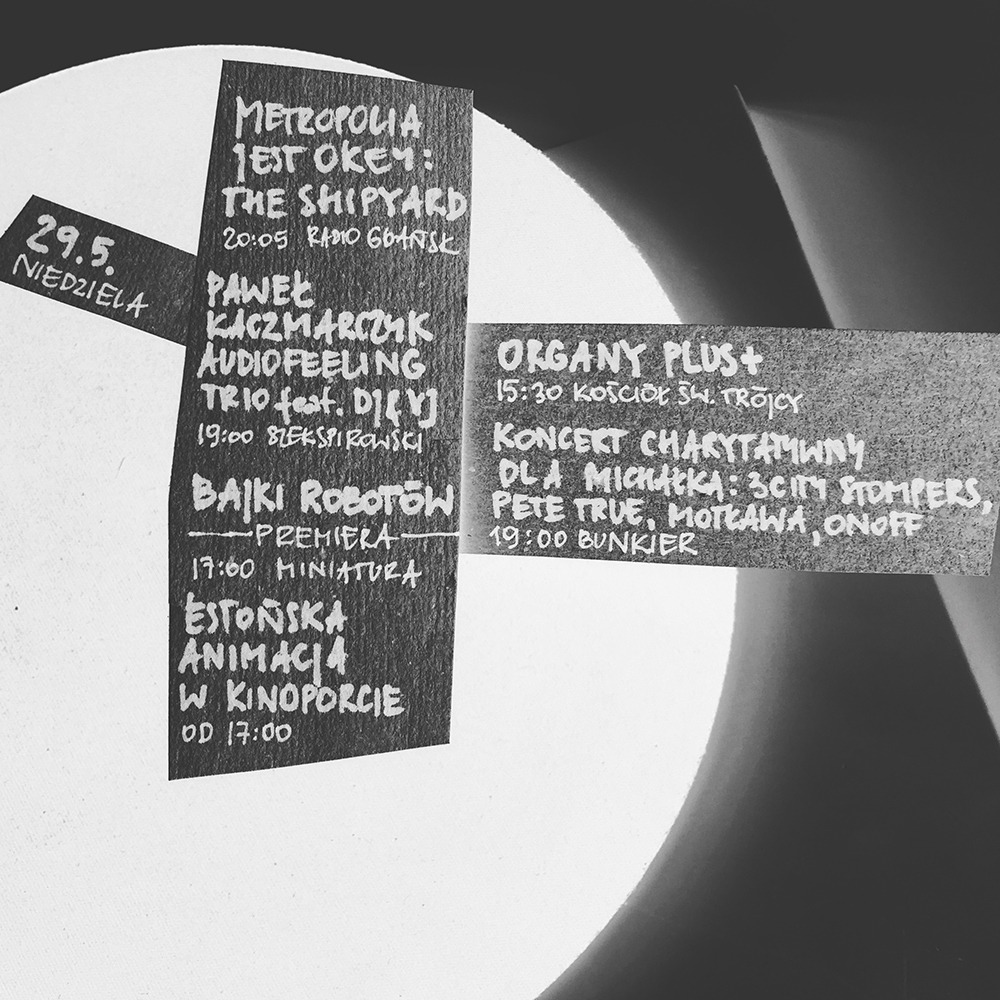 29.5.
NIEDZIELA
METROPOLIA
JEST OKEY:
THE SHIPYARD
20:05 RADIO GDAŃSK
PAWEŁ
KACZMARCZYK
AUDIOFEELING
TRIO feat. DJ & VJ
19:00 SZEKSPIROWSKI
BAJKI ROBOTÓW
PREMIERA
17:00 MINIATURA
ESTOŃSKA
ANIMACJA
W KINOPORCIE
OD 17:00
ORGANY PLUS+
15:30 KOŚCIÓŁ ŚW. TRÓJCY
KONCERT CHARYTATYWNY
DLA MICHAŁKA: 3CITY STOMPERS,
PETE TRUE, MOTŁAWA, ONOFF
19:00 BUNKIER